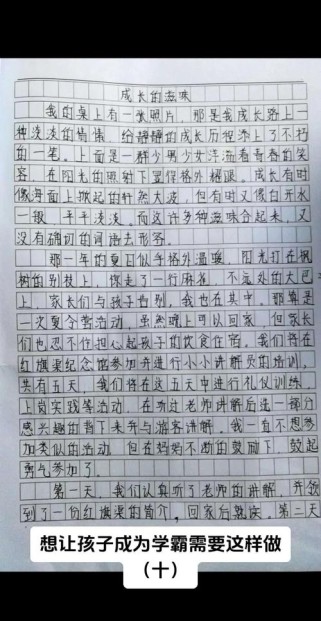 成长的滋味
我的桌上有一张照片，那是我成长路上一
种淡淡的情愫，给静静的成长历程添上了不朽
的一笔。上面是一群少男少女洋溢着青春的笑
容，在阳光的照射下显得格外耀眼。成长有时
像海面上掀起的轩然大波，但有时又像白开水
一般，平平淡淡。而这许多种滋味合起来，又
没有确切的词语去形容。
那一年的夏日似乎格外温暖，阳光打在枫
树的别枝上，惊走了一行麻雀，不远处的大巴
上，家长们与孩子告别，我也在其中。那算是
一次夏令营活动，虽然晚上可以回家，但家长
们也忍不住担心起孩子的饮食住宿。我们将在
红旗渠纪念馆参加并进行小小讲解员的培训，
共有五天，我们将在这五天中进行礼仪训练，
上岗实践等活动，在听过老师讲解后选一部分
感兴趣的背下来并与游客讲解。我一直不想参
加类似的活动，但在妈妈不断的鼓励下，鼓起
勇气参加了。
第一天，我们认真听了老师的讲解，并领
到了一份红旗渠的简介，回家后熟读。第二天
想让孩子成为学霸需要这样做
（十）